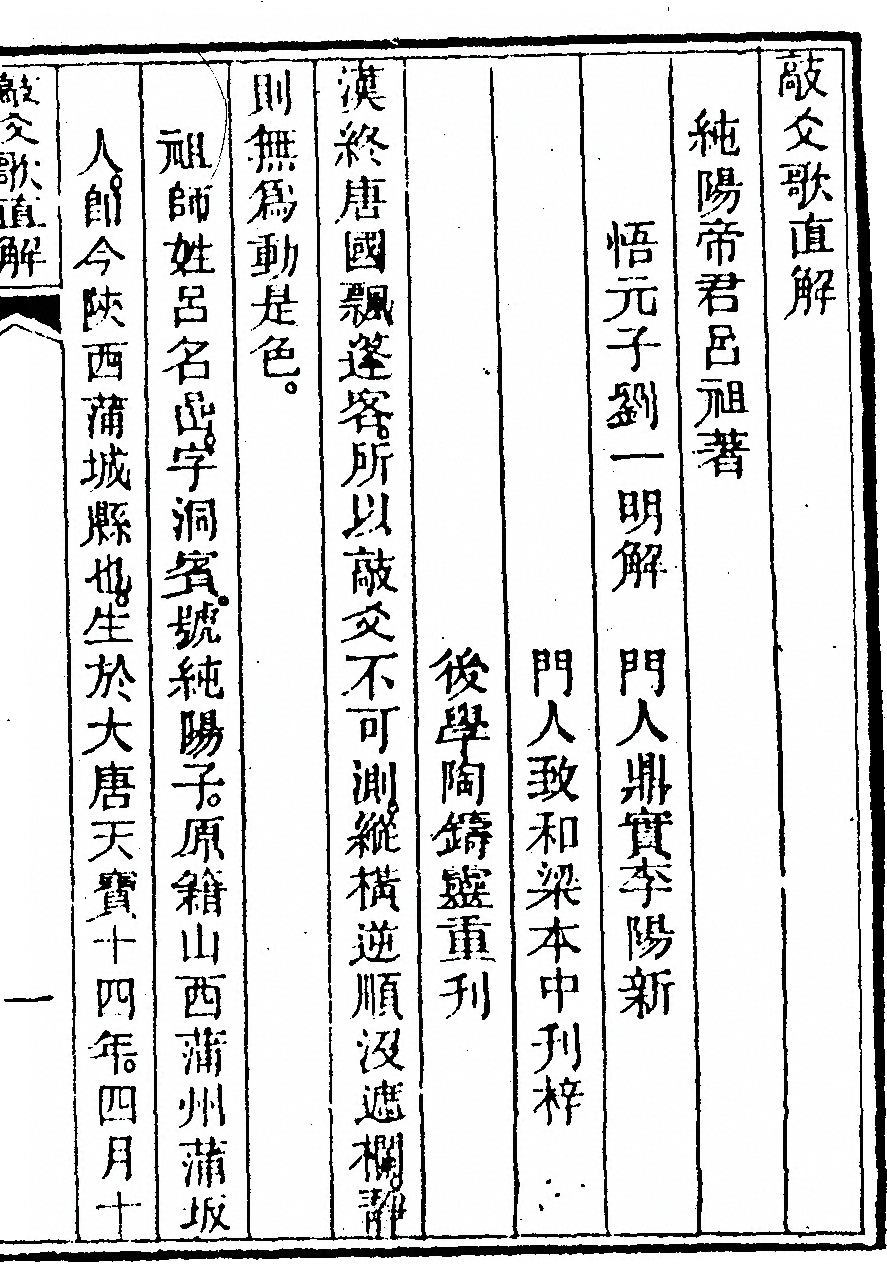 敲爻歌直解
純陽帝君呂祖著
悟元子劉一明解　門人鼎實李陽新
門人致和梁本中刊梓
後學陶鑄靈重刊
漢終唐國飄蓬客。所以敲爻不可測。縱橫逆順没遮欄。靜
則無爲動是色。
祖師姓呂名嵒。字洞賓。號純陽子。原籍山西蒲州蒲坂
人。卽今陝西蒲城縣也。生於大唐天寶十四年。四月十
敲爻歌直解
一